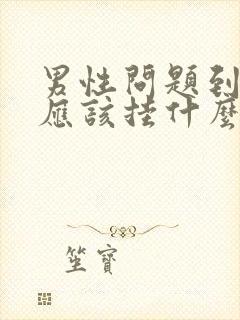 男性問題到
應該挂什麼
坐寶